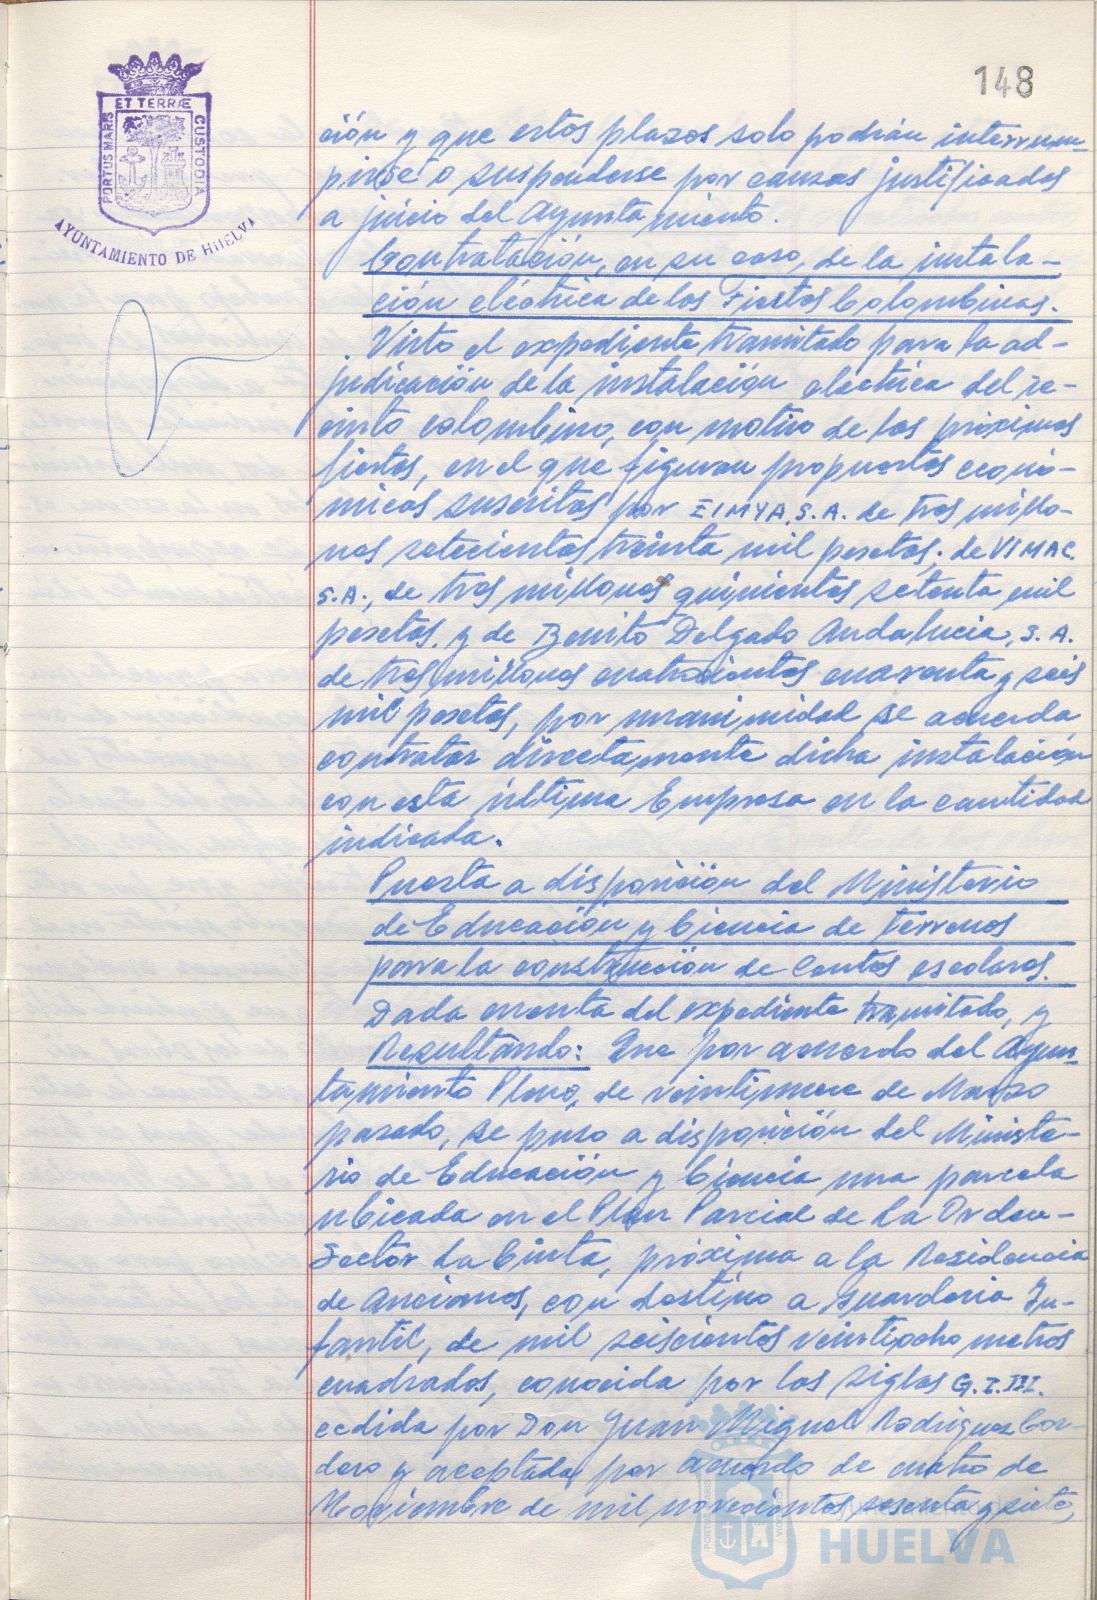 148
ET TERRÆ
PORTUS MARIS
CUSTODIA
AYUNTAMIENTO DE HUELVA
ción y que estos plazos solo podrán interrum-
pirse o suspenderse por causas justificadas
a juicio del Ayuntamiento.
Contratación, en su caso, de la instala-
ción eléctrica de las Fiestas Colombinas.
Visto el expediente tramitado para la ad-
judicación de la instalación electrica del re-
cinto colombino, con motivo de las próximas
fiestas, en el que figuran propuestas econó-
micas suscritas por EIMYA, S.A. de tres millo-
nes setecientas treinta mil pesetas; de VIMAC.
S.A., de tres millones quinientas setenta mil
pesetas, y de Benito Delgado Andalucia, S.A.
de tres millones cuatrocientas cuarenta y seis
mil pesetas, por unanimidad se acuerda
contratar directamente dicha instalación
con esta última Empresa en la cantidad
indicada.
Puesta a disposición del Ministerio
de Educación y Ciencia de terrenos
para la construcción de Centros escolares.
Dada cuenta del expediente tramitado, y
Resultando: Que por acuerdo del Ayun-
tamiento Pleno, de veintinueve de Marzo
pasado, se puso a disposición del Ministe-
rio de Educación y Ciencia una parcela
ubicada en el Plan Parcial de La Orden-
Sector La Cinta, próxima a la Residencia
de Ancianos, con destino a Guarderia In-
fantil, de mil seiscientos veintiocho metros
cuadrados, conocida por las siglas G.I.III.
cedida por Don Juan Miguel Rodriguez Cor-
dero y aceptada por acuerdo de cuatro de
Noviembre de mil novecientos sesenta y siete,
HUELVA